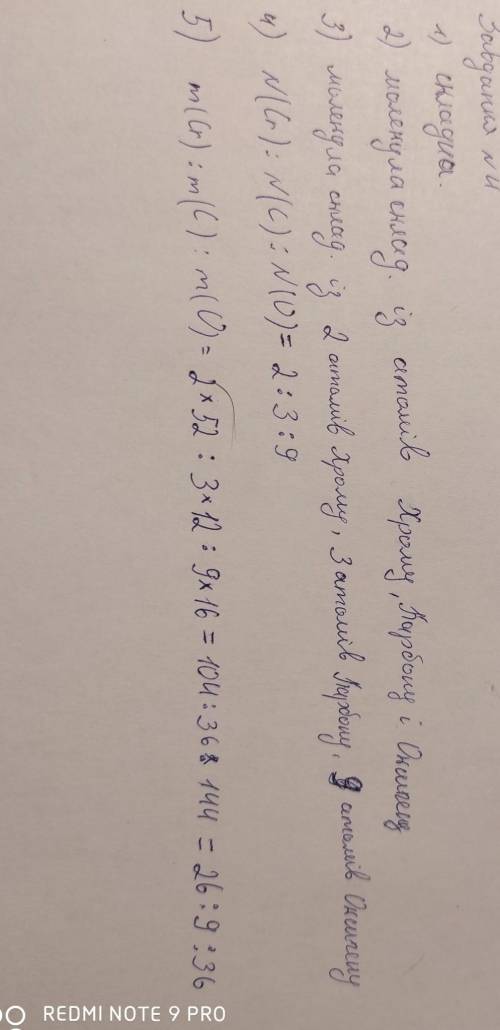 Завдання №4
1) складна.
2) молекула склад. із атомів Хрому, Карбону і Оксигену
3) молекула склад. із 2 атомів Хрому, 3 атомів Карбону, 9 атомів Оксигену
4) N(Cr) : N(C) : N(O) = 2 : 3 : 9
5) m(Cr) : m(C) : m(O) = 2×52 : 3×12 : 9×16 = 104 : 36 : 144 = 26 : 9 : 36
REDMI NOTE 9 PRO